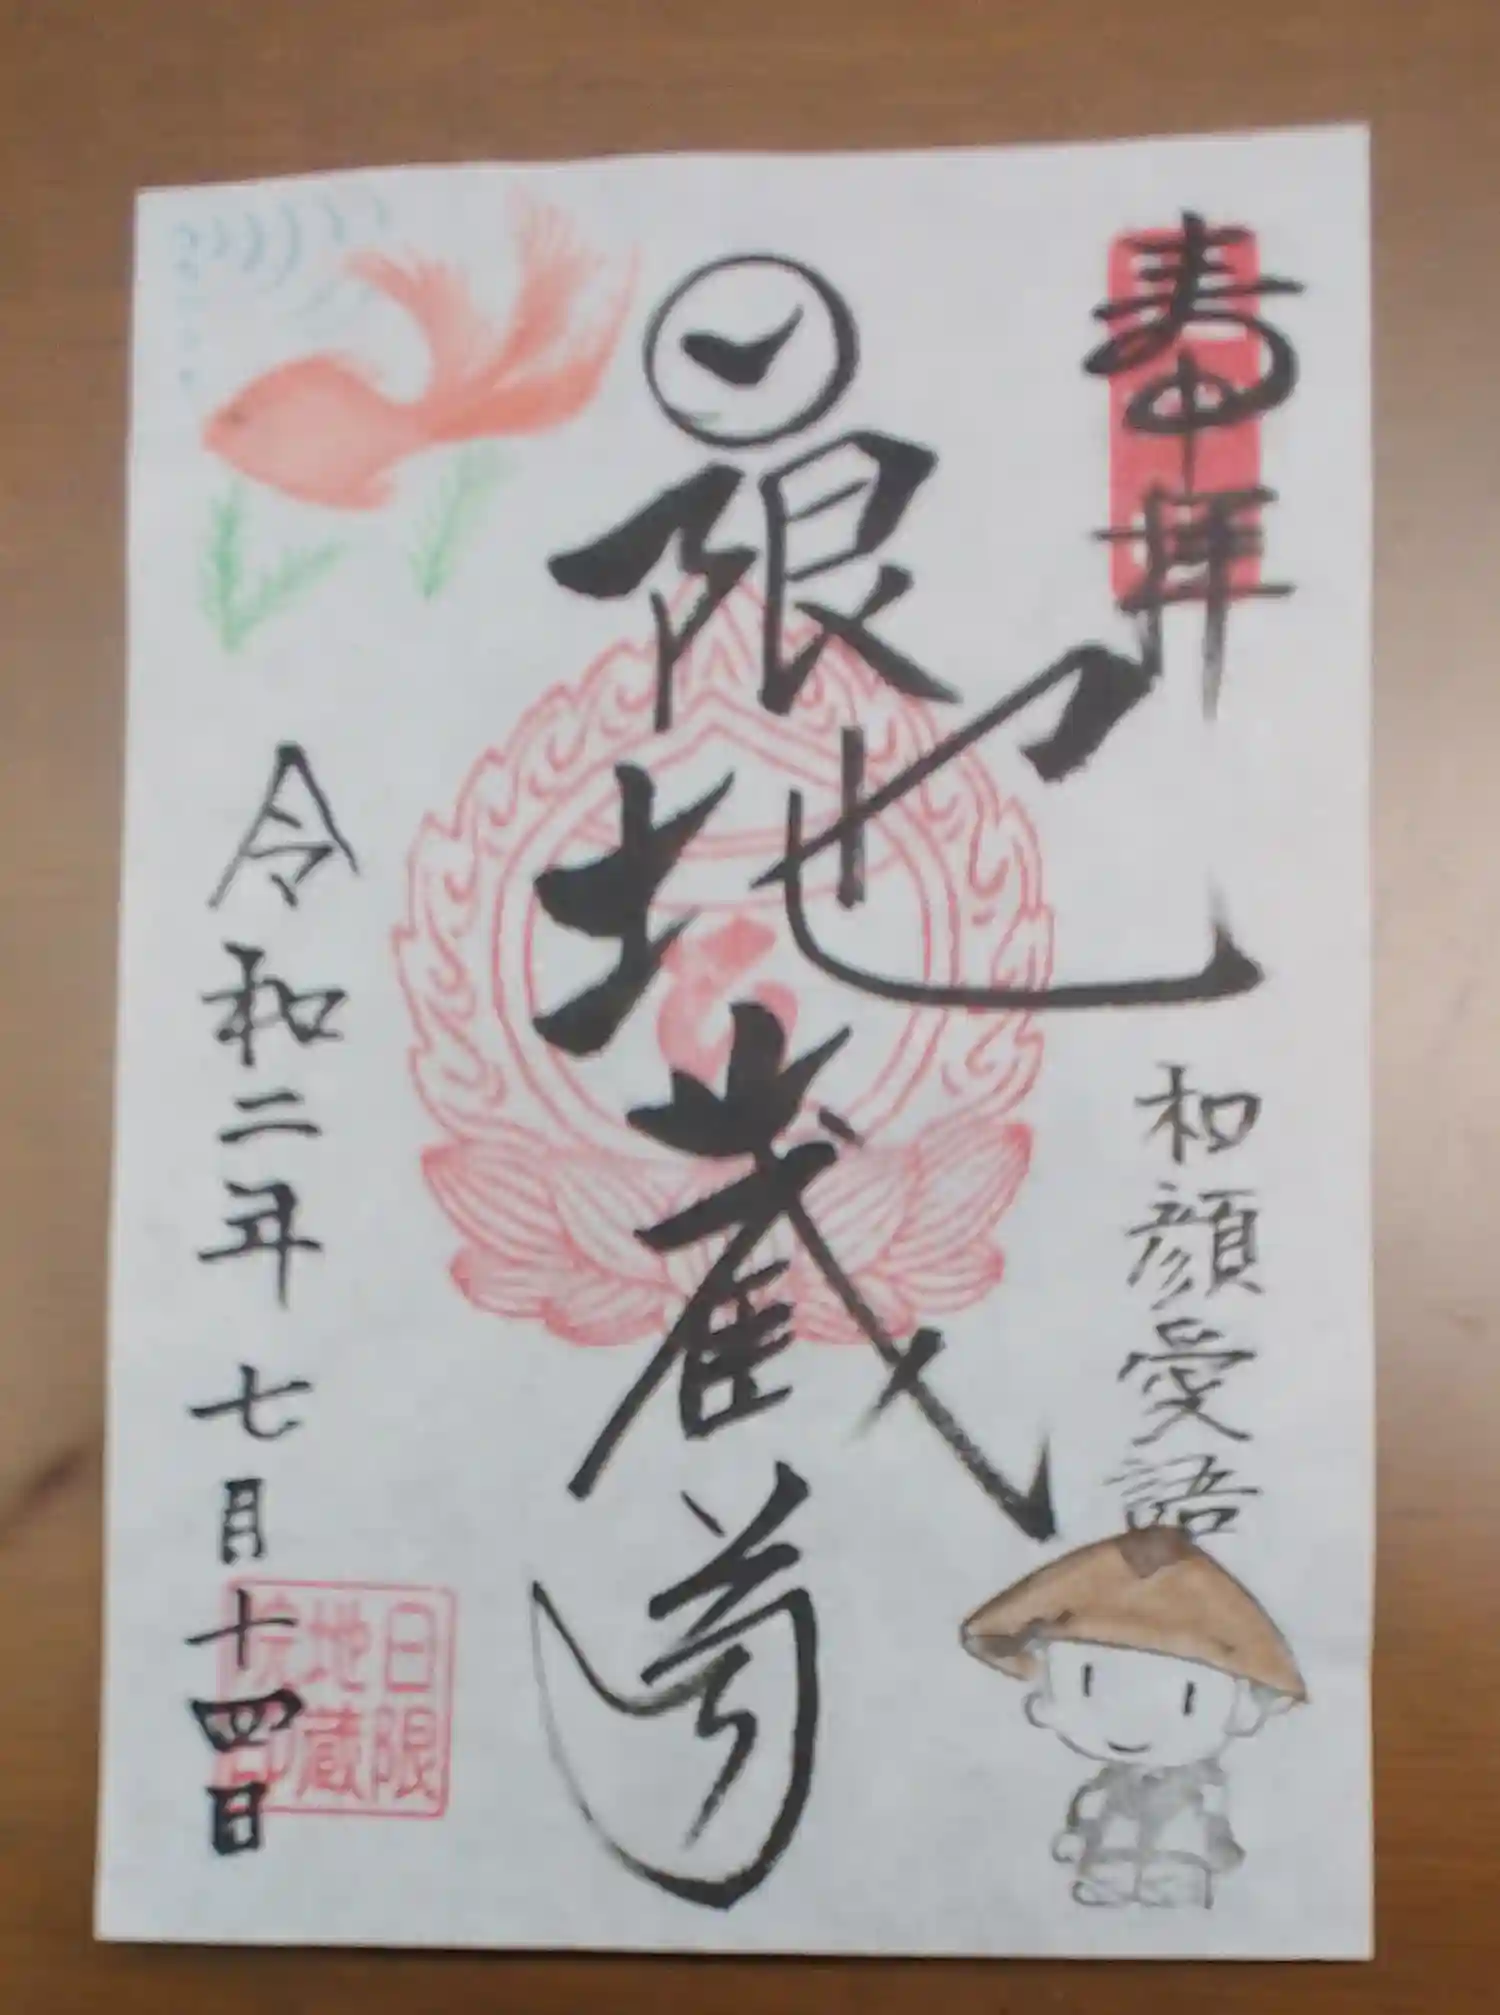 書中拝
和顔愛語
日限地蔵尊
令和二年七月十四日
日限
地蔵
院印